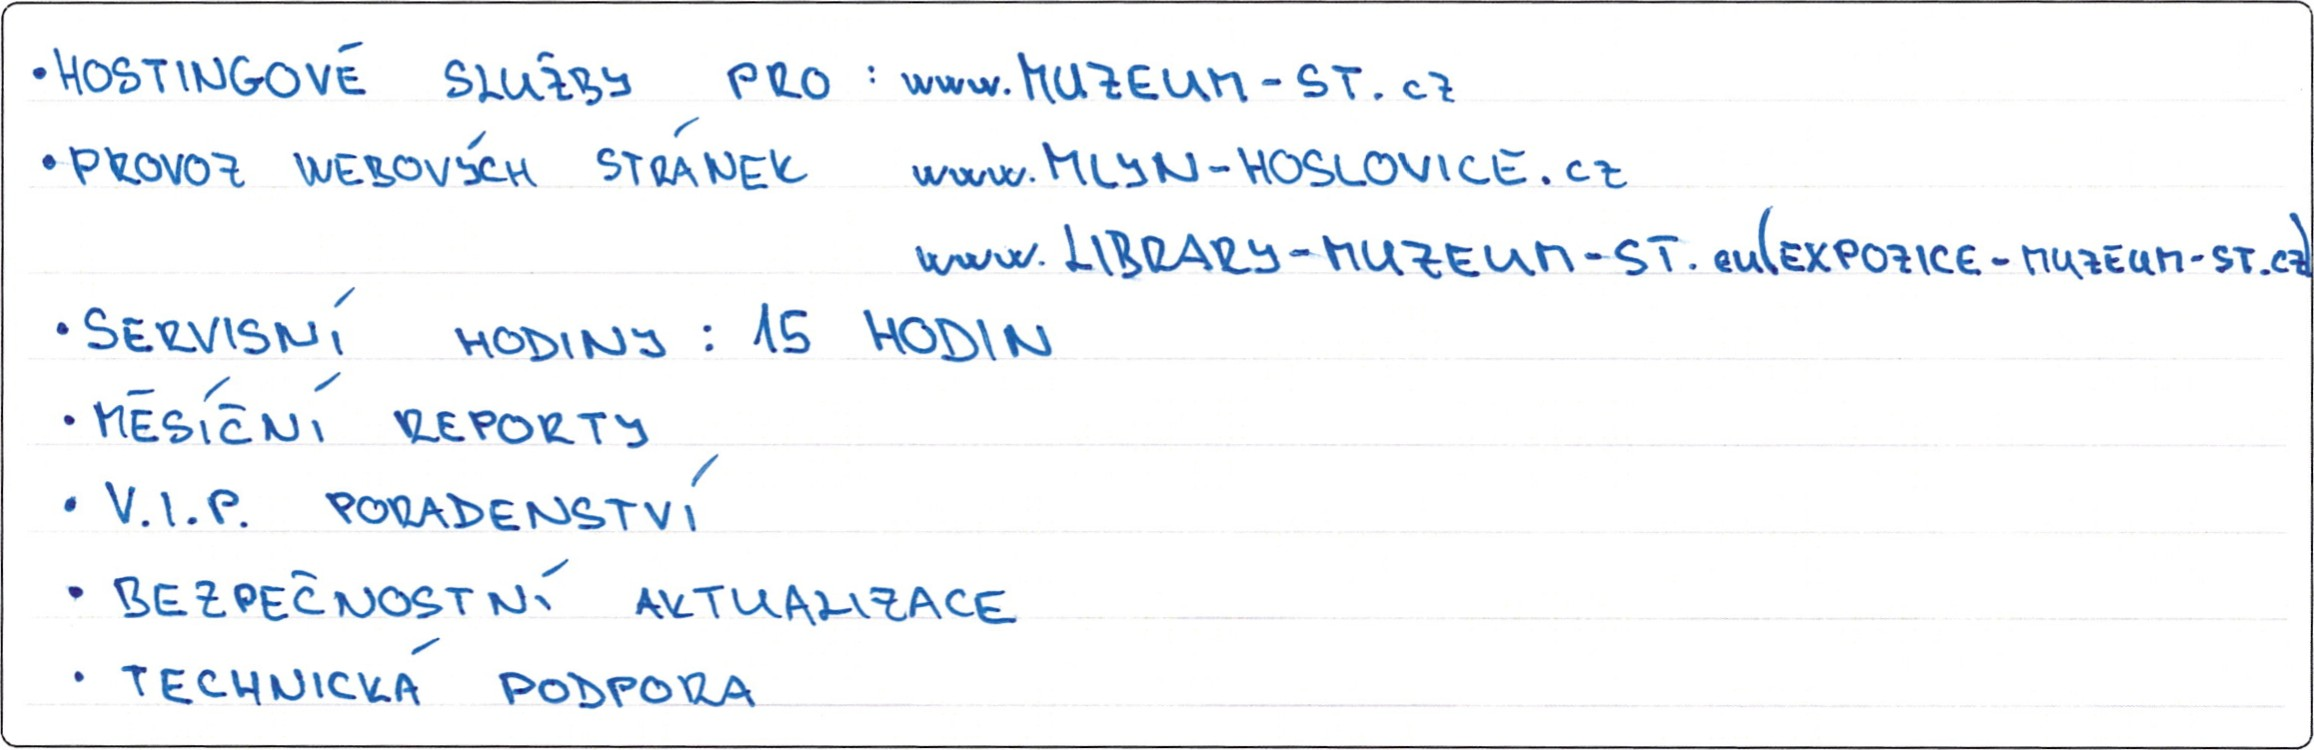 • HOSTINGOVÉ SLUŽBY PRO : www.MUZEUM-ST.cz
• PROVOZ WEBOVÝCH STRÁNEK www.MLYN-HOSLOVICE.cz
www.LIBRARY-MUZEUM-ST.eu(EXPOZICE-MUZEUM-ST.cz)
• SERVISNÍ HODINY : 15 HODIN
• MĚSÍČNÍ REPORTY
• V.I.P. PORADENSTVÍ
• BEZPEČNOSTNÍ AKTUALIZACE
• TECHNICKÁ PODPORA